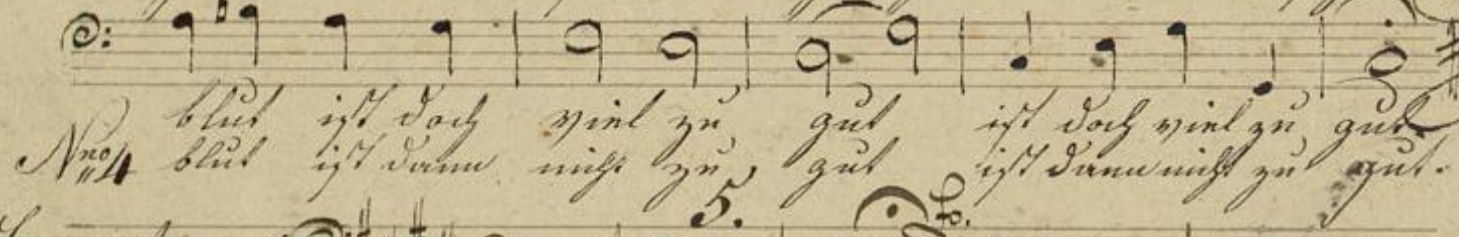 blut ist doch viel zu gut ist doch viel zu gut.
Nro 4 blut ist dann nicht zu gut ist dann nicht zu gut.
5.